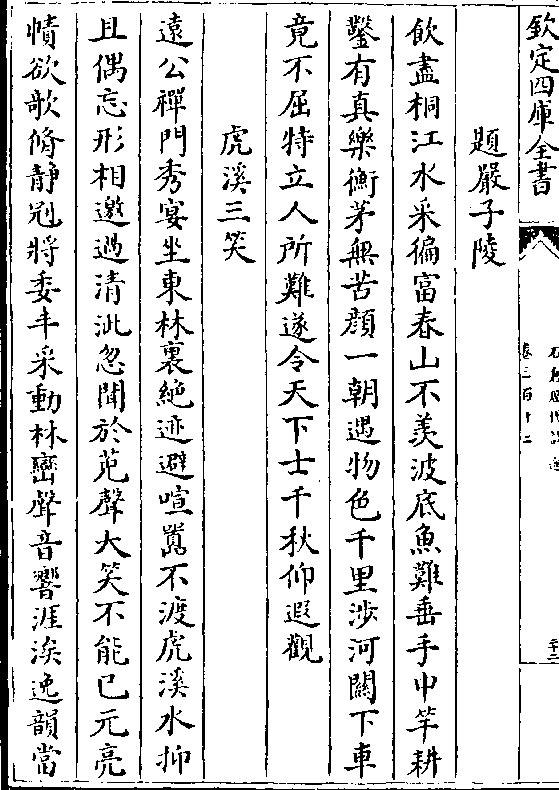 欽定四庫全書
卷三百十二
題嚴子陵
飲盡桐江水采徧富春山不羨波底魚難垂手中竿耕
鑿有真樂衡茅無苦顔一朝遇物色千里涉河關下車
竟不屈特立人所難遂令天下士千秋仰遐觀
虎溪三笑
遠公禪門秀宴坐東林裏絶迹避喧囂不渡虎溪水抑
且偶忘形相邀過清泚忽聞於菟聲大笑不能已元亮
幘欲欹脩靜剋將委丰采動林巒聲音響涯涘逸韻當